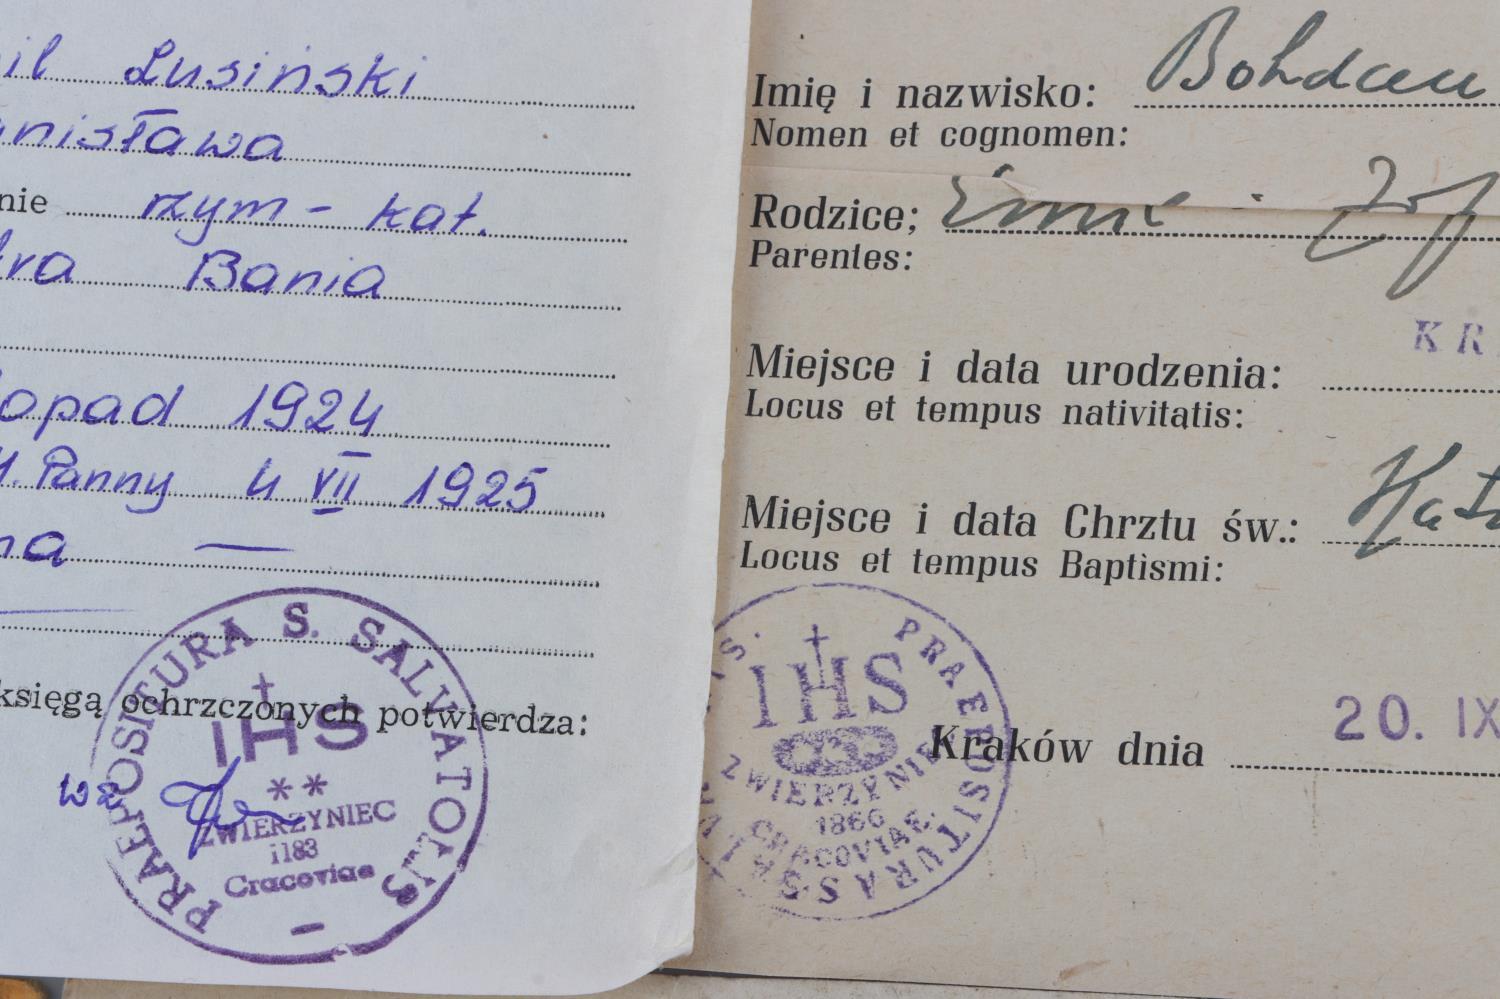 il Lusiński
nisława
nie rzym-kat.
ra Bania
opad 1924
M. Panny 4 VII 1925
na —
księgą ochrzczonych potwierdza:
wz
PRAEPOSITURA S. SALVATORIS
IHS
**
ZWIERZYNIEC
1183
Cracoviae
Imię i nazwisko: Bohdan
Nomen et cognomen:
Rodzice; Emil i Zof
Parentes:
KR
Miejsce i data urodzenia:
Locus et tempus nativitatis:
Miejsce i data Chrztu św.:
Locus et tempus Baptismi:
PRAEPOSITURA SS.
IHS
ZWIERZYNIE
1866
CRACOVIAE.
Kraków dnia 20. IX